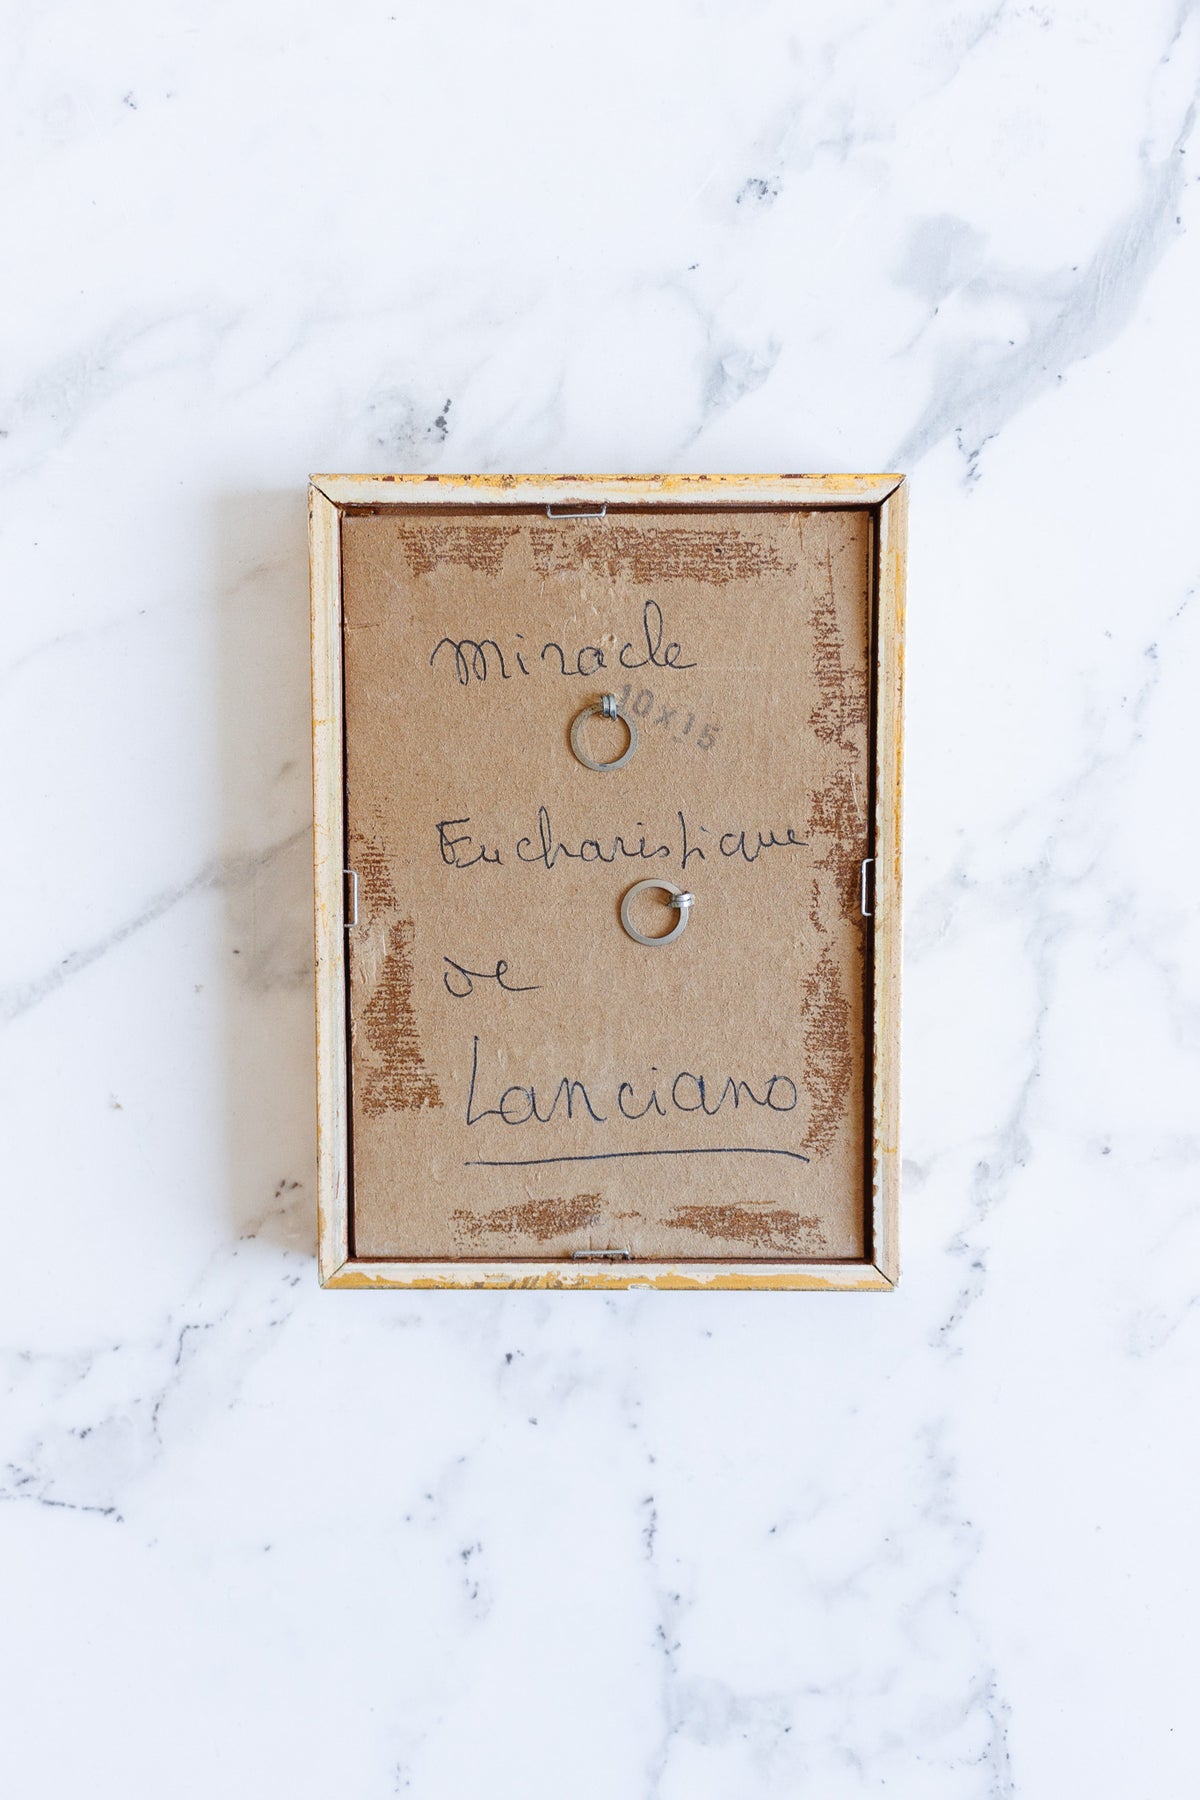 Miracle
10x15
Eucharistique
de
Lanciano